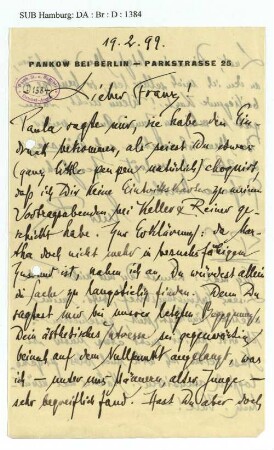 SUB Hamburg: DA : Br : D : 1384
19.2.99.
PANKOW BEI BERLIN — PARKSTRASSE 25
1384
Lieber Franz!
Paula sagte mir, sie habe den Ein-
druck bekommen, als seiest Du etwas
(ganz little penpen natürlich) choquirt,
daß ich Dir keine Eintrittskarten zu meinen
Vortragsabenden bei Keller & Reiner ge-
schickt habe. Zur Erklärung: da
doch nicht mehr in besuchsfähigem
Zustand ist, nahm ich an, Du würdest allein
die Sache zu langweilig finden. Denn Du
sagtest mir bei unsrer letzten Begegnung,
Dein ästhetisches Interesse sei gegenwärtig
beinah auf dem Nullpunkt angelangt, was
ich – unter uns Männern, alter Junge –
sehr begreiflich fand. Hast Du aber doch